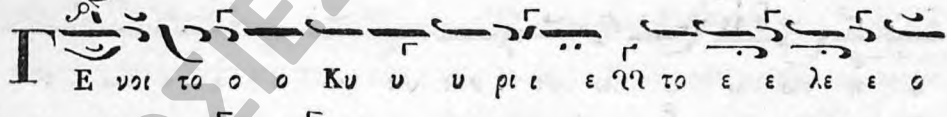 Γ Ε νοι το ο ο Κυ υ υ ρι ι ε το ε ε λε ε ο